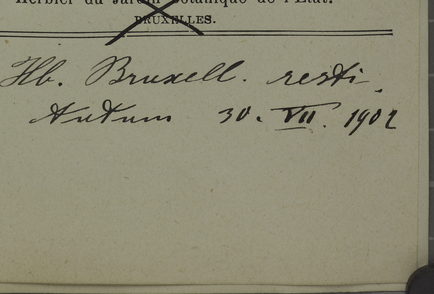 Herbier du Jardin botanique de l'État.
BRUXELLES.
Hb. Bruxell. resti
tutum 30. VII. 1902